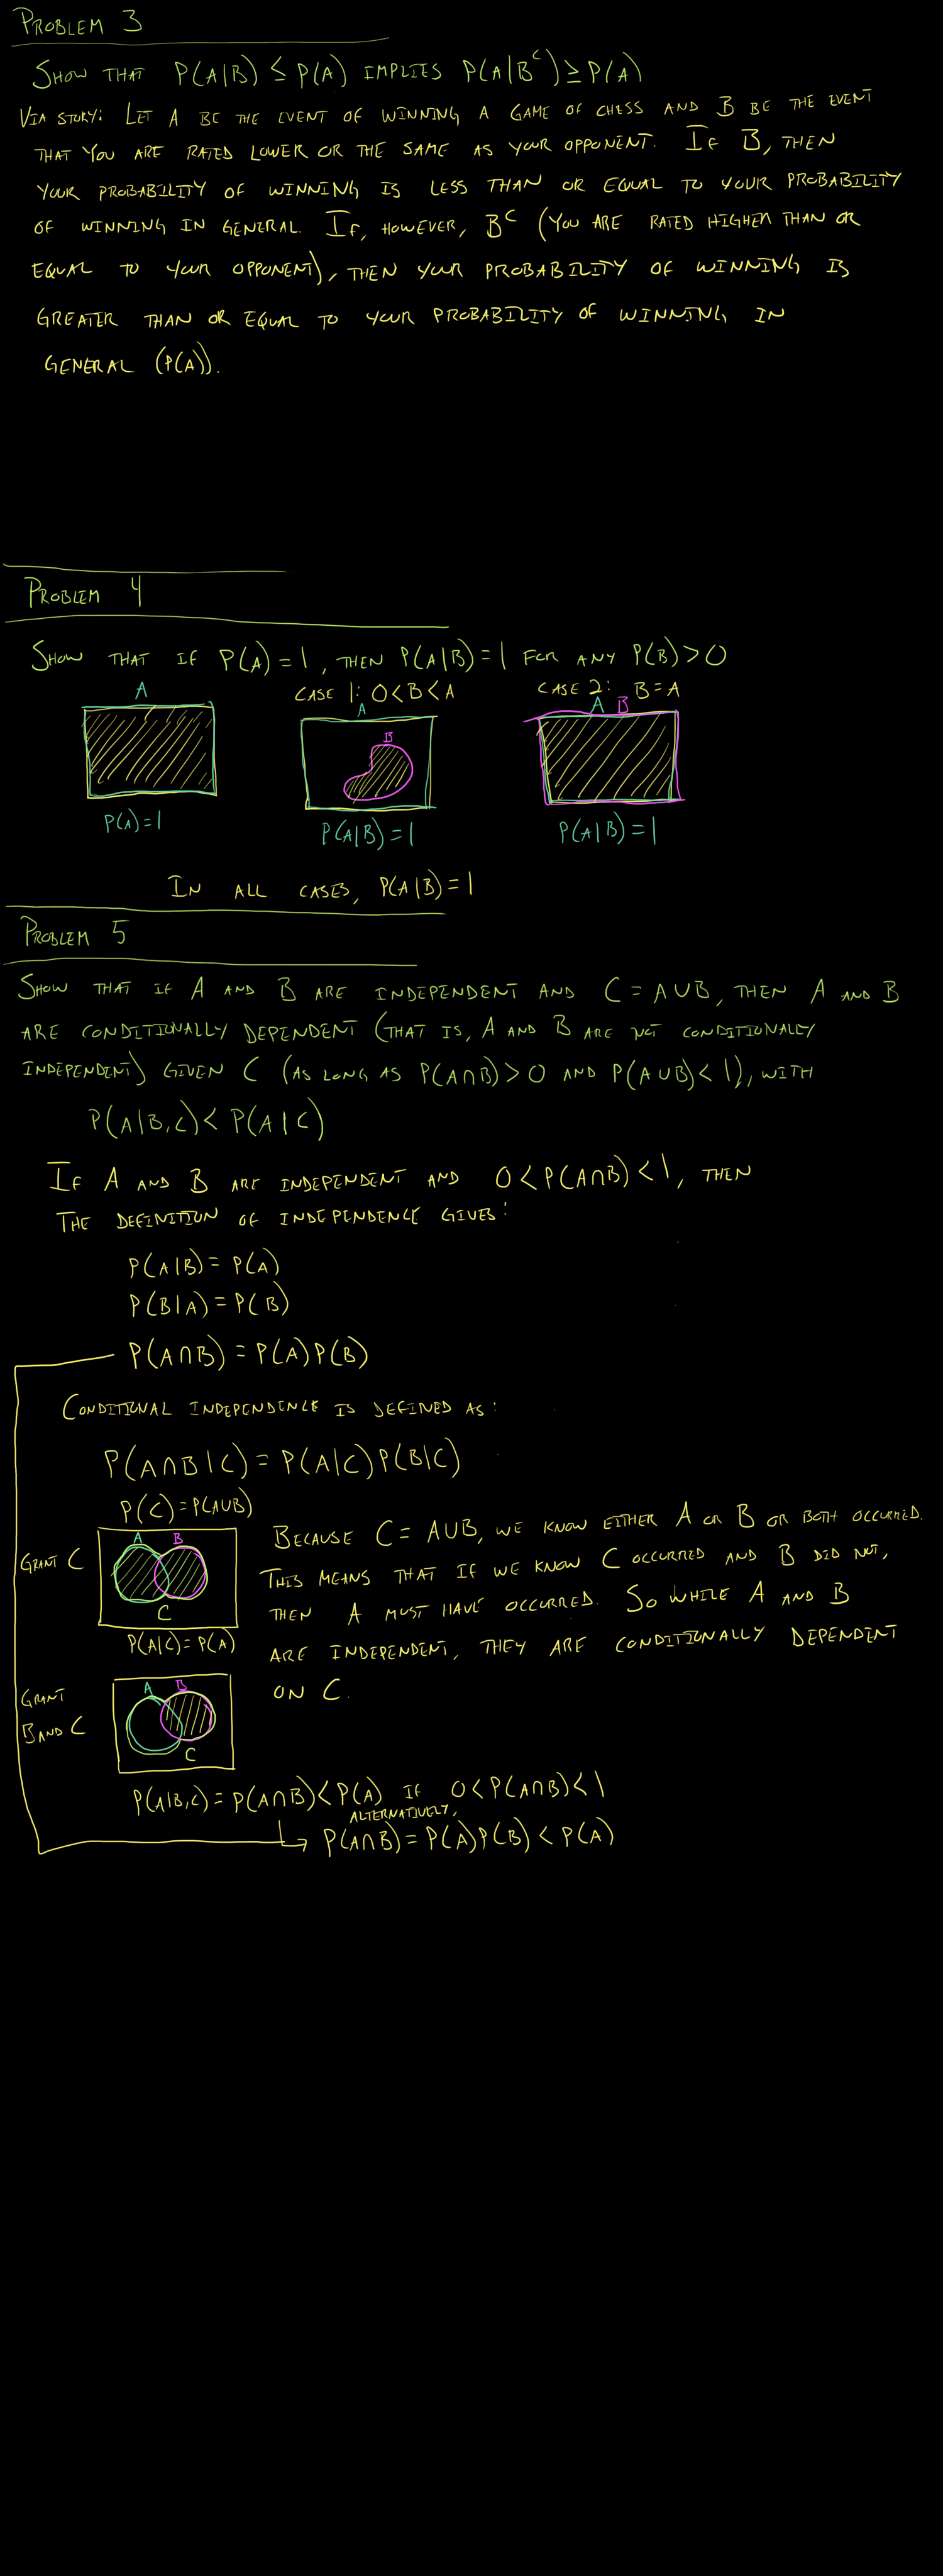 PROBLEM 3
SHOW THAT P(A|B) ≤ P(A) IMPLIES P(A|B^C) ≥ P(A)
VIA STORY: LET A BE THE EVENT OF WINNING A GAME OF CHESS AND B BE THE EVENT
THAT YOU ARE RATED LOWER OR THE SAME AS YOUR OPPONENT. IF B, THEN
YOUR PROBABILITY OF WINNING IS LESS THAN OR EQUAL TO YOUR PROBABILITY
OF WINNING IN GENERAL. IF, HOWEVER, B^C (YOU ARE RATED HIGHER THAN OR
EQUAL TO YOUR OPPONENT), THEN YOUR PROBABILITY OF WINNING IS
GREATER THAN OR EQUAL TO YOUR PROBABILITY OF WINNING IN
GENERAL (P(A)).
PROBLEM 4
SHOW THAT IF P(A) = 1, THEN P(A|B) = 1 FOR ANY P(B) > 0
A
CASE 1: 0 < B < A
CASE 2: B = A
A
A B
B
P(A) = 1
P(A|B) = 1
P(A|B) = 1
IN ALL CASES, P(A|B) = 1
PROBLEM 5
SHOW THAT IF A AND B ARE INDEPENDENT AND C = A∪B, THEN A AND B
ARE CONDITIONALLY DEPENDENT (THAT IS, A AND B ARE NOT CONDITIONALLY
INDEPENDENT) GIVEN C (AS LONG AS P(A∩B) > 0 AND P(A∪B) < 1), WITH
P(A|B,C) < P(A|C)
IF A AND B ARE INDEPENDENT AND 0 < P(A∩B) < 1, THEN
THE DEFINITION OF INDEPENDENCE GIVES:
P(A|B) = P(A)
P(B|A) = P(B)
P(A∩B) = P(A)P(B)
CONDITIONAL INDEPENDENCE IS DEFINED AS:
P(A∩B|C) = P(A|C)P(B|C)
P(C) = P(A∪B)
GRANT C
A B
C
P(A|C) = P(A)
BECAUSE C = A∪B, WE KNOW EITHER A OR B OR BOTH OCCURRED.
THIS MEANS THAT IF WE KNOW C OCCURRED AND B DID NOT,
THEN A MUST HAVE OCCURRED. SO WHILE A AND B
ARE INDEPENDENT, THEY ARE CONDITIONALLY DEPENDENT
ON C.
GRANT
B AND C
A B
C
P(A|B,C) = P(A∩B) < P(A) IF 0 < P(A∩B) < 1
ALTERNATIVELY,
P(A∩B) = P(A)P(B) < P(A)